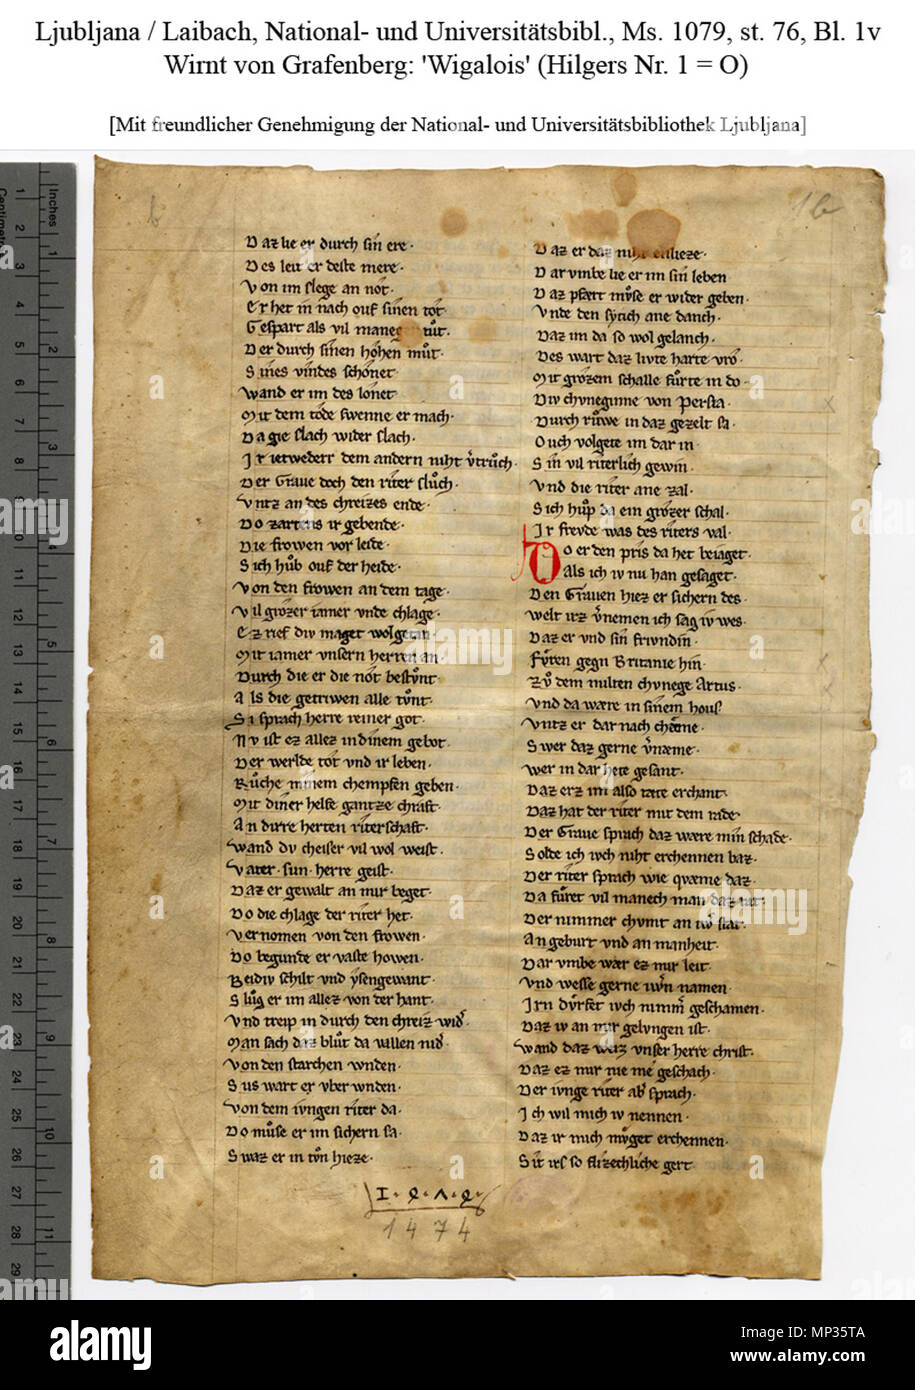 Ljubljana / Laibach, National- und Universitätsbibl., Ms. 1079, st. 76, Bl. 1v
Wirnt von Grafenberg: 'Wigalois' (Hilgers Nr. 1 = O)
[Mit freundlicher Genehmigung der National- und Universitätsbibliothek Ljubljana]
1b
Daz lie er durch sin ere·
Des leit er deste mere·
Von im slege an not·
Er het in nach ouf sinen tot
Gespart als vil maneg tuͦt·
Der durch sinen hohen muͦt·
Sines vindes schonet
Wand er im des lonet
Mit dem tode swenne er mach·
Da gie slach wider slach·
Ir ietweder dem andern niht v̉truͦch·
Der Graue doch den riter sluͦch·
Vntz an des chreizes ende·
Do zartens ir gebende·
Die frowen vor leide·
Sich huͦb ouf der heide·
Von den frowen an dem tage·
Vil grozer iamer vnde chlage·
Ez rief div maget wolgetan
Mit iamer vnsern herren an·
Durch die er die not bestuͦnt·
Als die getriwen alle tuͦnt·
Si sprach herre reiner got·
Nv ist ez allez in dinem gebot·
Der werlde tot vnd ir leben·
Ruͦche minem chempfen geben·
Mit diner helfe gantze chraft·
An dirre herten riterschaft·
Wand dv cheiser vil wol weist·
Vater· sun· herre geist·
Daz er gewalt an mir beget·
Do die chlage der riter het·
Vernomen von den frowen·
Do begunde er vaste howen·
Beidiv schilt vnd ysengewant·
Sluͦg er im allez von der hant·
Vnd treip in durch den chreiz wid̉·
Man sach daz bluͦt da vallen nid̉·
Von den starchen wnden·
Sus wart er vber wnden·
Von dem ivngen riter da·
Do muͦse er im sichern sa·
Swaz er in tuͦn hieze·
I·
1474
Daz er daz niht enlieze·
Dar vmbe lie er im sin leben
Daz pfært muͦse er wider geben·
Vnde den sytich ane danch·
Daz im da so wol gelanch·
Des wart daz livte harte vro·
Mit grozem schalle fuͦrte in do·
Div chvneginne von Persia·
Durch ruͦwe in daz gezelt sa·
Ouch volgete im dar in·
Sin vil riterlich gewin·
Vnd die riter ane zal·
Sich huͦp da ein grozer schal·
Ir frevde was des riters val·
Do er den pris da het beiaget·
Als ich iv nu han gesaget·
Den Grauen hiez er sichern des·
Welt irz v̉nemen ich sag iv wes·
Daz er vnd sin frivndin·
Fuͤren gegn Britanie hin·
Zuͦ dem milten chvnege Artus·
Vnd da wære in sinem hous
Vntz er dar nach chœme·
Swer daz gerne v̉næme·
Wer in dar hete gesant·
Daz erz im also tæte erchant·
Daz hat der riter mit dem rade·
Der Graue sprach daz wære min schade·
Solde ich ivch niht erchennen baz·
Der riter sprach wie qvæme daz·
Da fuͤret vil manech man daz rat·
Der nimmer chvmt an iw̉ stat·
An geburt vnd an manheit·
Dar vmbe wær ez mir leit·
Vnd wesse gerne iw̉n namen·
Irn dvrfet ivch nimm̉ geschamen·
Daz iv an mir gelvngen ist·
Wand daz weiz vnser herre christ·
Daz ez mir nie me geschach·
Der ivnge riter ab̉ sprach·
Ich wil mich iv nennen·
Daz ir mich mvget erchennen·
Sit irs so flizechliche gert·